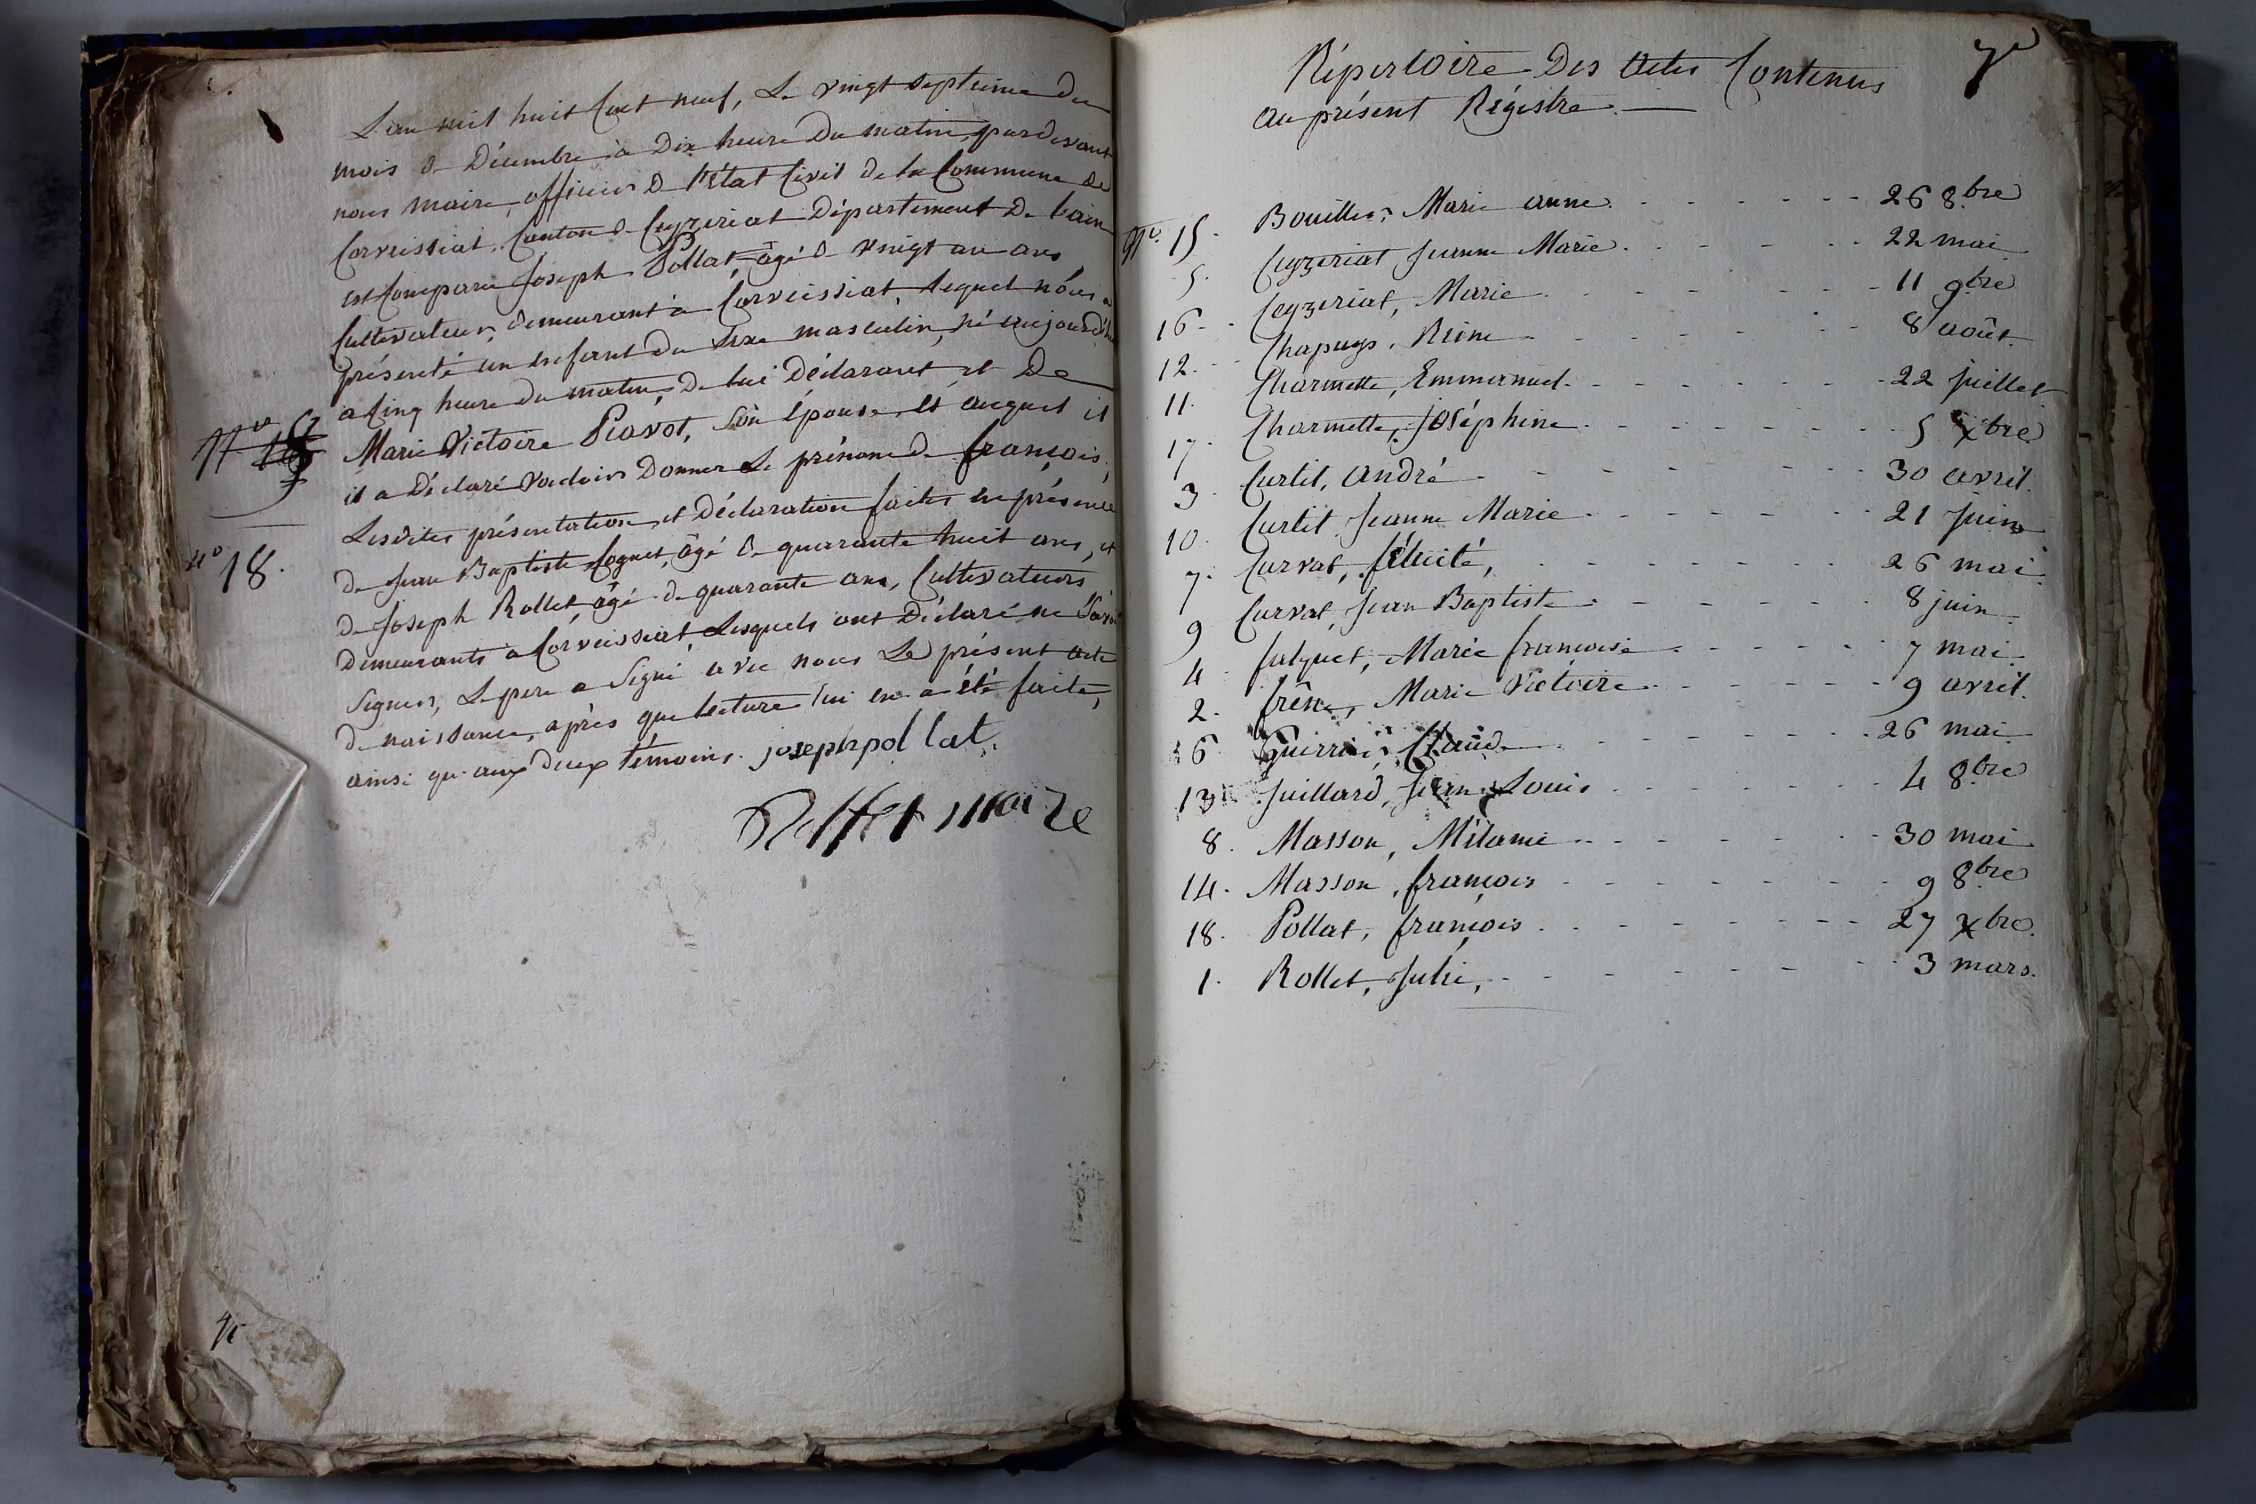 L'an mil huit Cent neuf, Le vingt septieme du
mois de Décembre à Dix heure Du matin, pardevant
nous maire, officier de l'état Civil de la Commune de
Corveissiat, Canton de Ceyzeriat Département De Lain
est Comparu Joseph Pollat, âgé de vingt un ans
Cultivateur, demeurant à Corveissiat, lequel nous a
présenté un enfant du sexe masculin, né aujourd'hui
a Cinq heure du matin, de lui Déclarant, et De
Marie Victoire Piavot, son épouse, et auquel il
il a Déclaré vouloir Donner Le prénom de françois,
Lesdites présentation et Déclaration faites en présence
de Jean Baptiste Cognet, âgé de quarante huit ans, et
de Joseph Rollet, âgé de quarante ans, Cultivateurs
demeurants à Corveissiat, Lesquels ont Déclaré ne Savoir
Signer, Le pere a Signé avec nous Le présent acte
de naissance, après que lecture lui en a été faite,
ainsi qu'aux deux témoins. joseph pol lat.
maire
N.º
nº 18.
Répertoire Des Actes Contenus
au présent Régistre.
7e
Nº. 15. Bouiller, Marie anne. 26 8.bre
5. Ceyzeriat Jeanne Marie. 22 mai
16. Ceyzeriat, Marie 11 9bre
12. Chapuys, Reine 8 août.
11. Charmette, Emmanuel. 22 juillet
17. Charmette, Joséphine. 5 xbre
3. Curtil, André 30 avril.
10. Curtil Jeanne Marie 21 juin
7. Curvat, félicité, 26 mai.
9 Curvat, Jean Baptiste 8 juin
4. falquet, Marie francoise 7 mai.
2. frêne, Marie Victoire 9 avril.
6 Guerrin, Claude 26 mai
13 Juillard, Jean Louis 4 8.bre
8. Masson, Mélanie 30 mai
14. Masson, françois 9 8bre
18. Pollat, françois. 27 xbre.
1. Rollet, Julie, 3 mars.